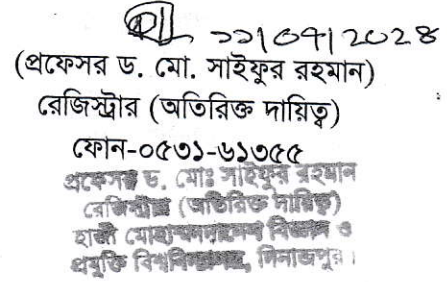 ২২/০৭/২০২৪
(প্রফেসর ড. মো. সাইফুর রহমান)
রেজিস্ট্রার (অতিরিক্ত দায়িত্ব)
ফোন-০৫৩১-৬১৩৫৫
প্রফেসর ড. মোঃ সাইফুর রহমান
রেজিস্ট্রার (অতিরিক্ত দায়িত্ব)
হাজী মোহাম্মদ দানেশ বিজ্ঞান ও
প্রযুক্তি বিশ্ববিদ্যালয়, দিনাজপুর।